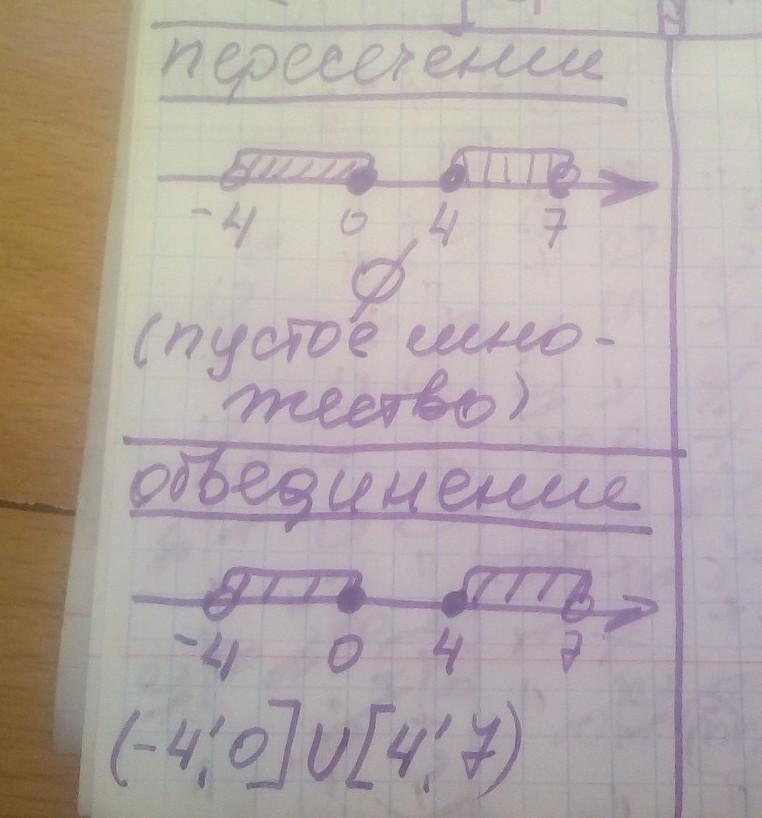 пересечение
-4 0 4 7
∅
(пустое мно-
жество)
объединение
-4 0 4 7
(-4; 0] U [4; 7)